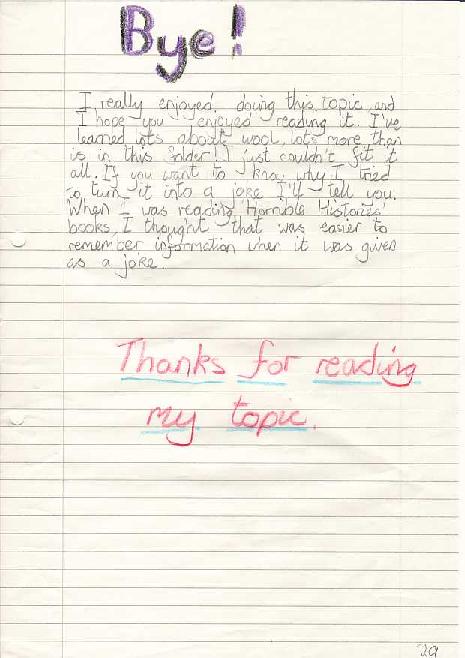 Bye!
I really enjoyed, doing this topic and
I hope you enjoyed reading it. I've
learned lots about wool, lots more then
is in this folder! I just couldn't fit it
all. If you want to know why I tried
to turn it into a joke I'll tell you.
When I was reading 'Horrible Histories'
books, I thought that was easier to
remember information when it was given
as a joke.
Thanks for reading
my topic.
29